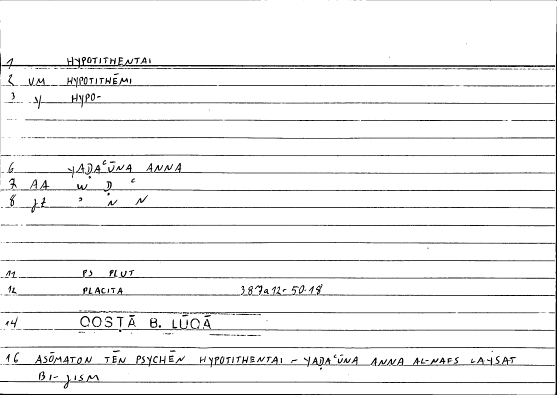 1 HYPOTITHENTAI
2 VM HYPOTITHĒMI
3 HYPO-
6 YAḌAʿŪNA ANNA
7 AA W Ḍ ʿ
8 ʾ N N
11 PS PLUT
12 PLACITA 387a12-50.18
14 QOSṬĀ B. LŪQĀ
16 ASŌMATON TĒN PSYCHĒN HYPOTITHENTAI – YAḌAʿŪNA ANNA AL-NAFS LAYSAT
BI-JISM